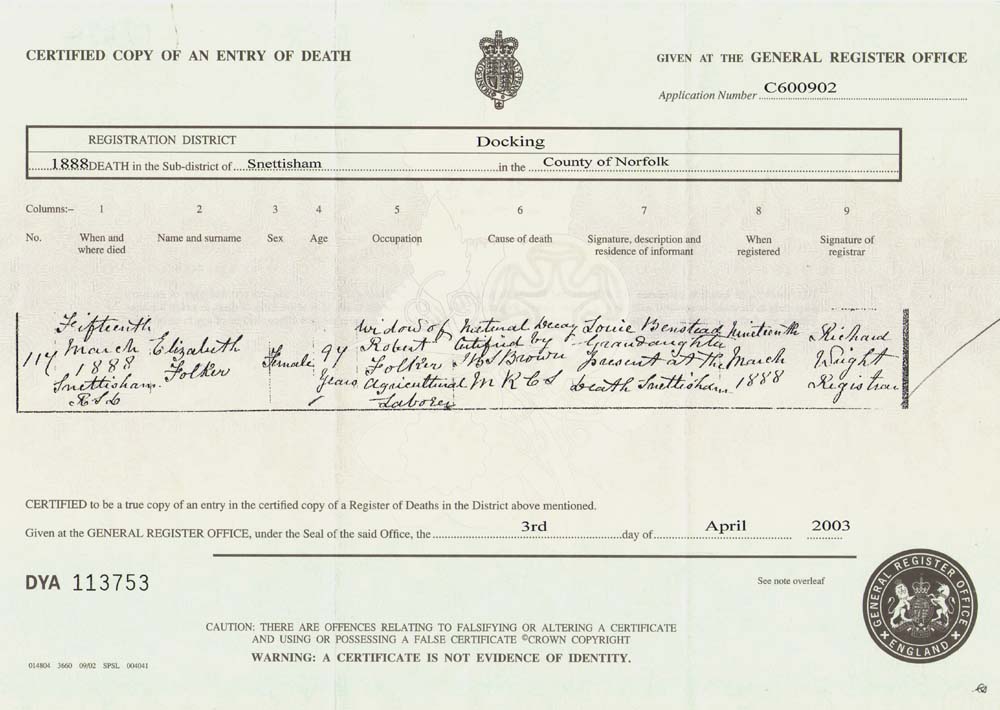 CERTIFIED COPY OF AN ENTRY OF DEATH
GIVEN AT THE GENERAL REGISTER OFFICE
Application Number C600902
REGISTRATION DISTRICT Docking
1888 DEATH in the Sub-district of Snettisham in the County of Norfolk
Columns:– 1 2 3 4 5 6 7 8 9
No. When and where died Name and surname Sex Age Occupation Cause of death Signature, description and residence of informant When registered Signature of registrar
Fifteenth
March
1888
Snettisham
Elizabeth
Folker
Female
Years
Widow of
Robert
Folker
Agricultural
Laborer
Natural Decay
Certified by
Brown
M R C S
Louie Benstead
Grandaughter
Present at the
death Snettisham
Nineteenth
March
1888
Richard
Wright
Registrar
CERTIFIED to be a true copy of an entry in the certified copy of a Register of Deaths in the District above mentioned.
Given at the GENERAL REGISTER OFFICE, under the Seal of the said Office, the 3rd day of April 2003
DYA 113753
See note overleaf
GENERAL REGISTER OFFICE
ENGLAND
CAUTION: THERE ARE OFFENCES RELATING TO FALSIFYING OR ALTERING A CERTIFICATE
AND USING OR POSSESSING A FALSE CERTIFICATE ©CROWN COPYRIGHT
WARNING: A CERTIFICATE IS NOT EVIDENCE OF IDENTITY.
014804 3660 09/02 SPSL 004041